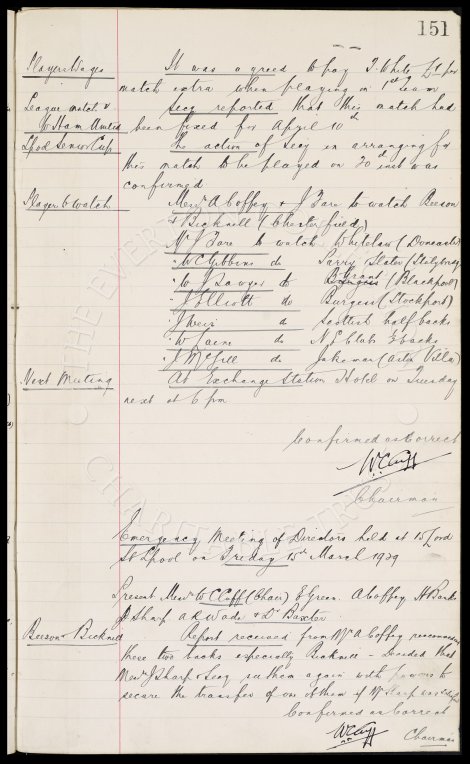 151
Players Wages It was agreed to pay T. White £1 per
match extra when playing in 1st team
League match v Secy reported that this match had
W Ham United been fixed for April 10th
Lpool Senior Cup The action of Secy in arranging for
this match to be played on 20th inst was
confirmed
Players to watch Messrs A Coffey & J Fare to watch Beeson
& Bicknell (Chesterfield)
Mr J Fare to watch Whitelaw (Doncaster)
" W C Gibbins do Parry Slater (Stalybridge)
" W J Sawyer do Grant (Blackpool)
" J Elliott do Burgess (Stockport)
" J Weir do Scottish half backs
" W Laine do N E Clubs & backs
" J McGill do (Aston Villa)
Next Meeting At Exchange Station Hotel on Tuesday
next at 6 pm.
Confirmed as Correct
W.C. Cuff
Chairman
THE EVERTON
CHARITABLE TRUST
Emergency Meeting of Directors held at 15 Lord
St Lpool on Friday 15th March 1929
Present Messrs W C Cuff (Chair) E Green. A Coffey H Banks
J Sharp A R Wade & Dr Baxter
Beeson & Bicknell Report received from Mr A Coffey recommending
these two backs especially Bicknell - Decided that
Messrs J Sharp & Secy see them again with powers to
secure the transfer of one of them if Mr Sharp was satisfied
Confirmed as Correct
W.C. Cuff
Chairman